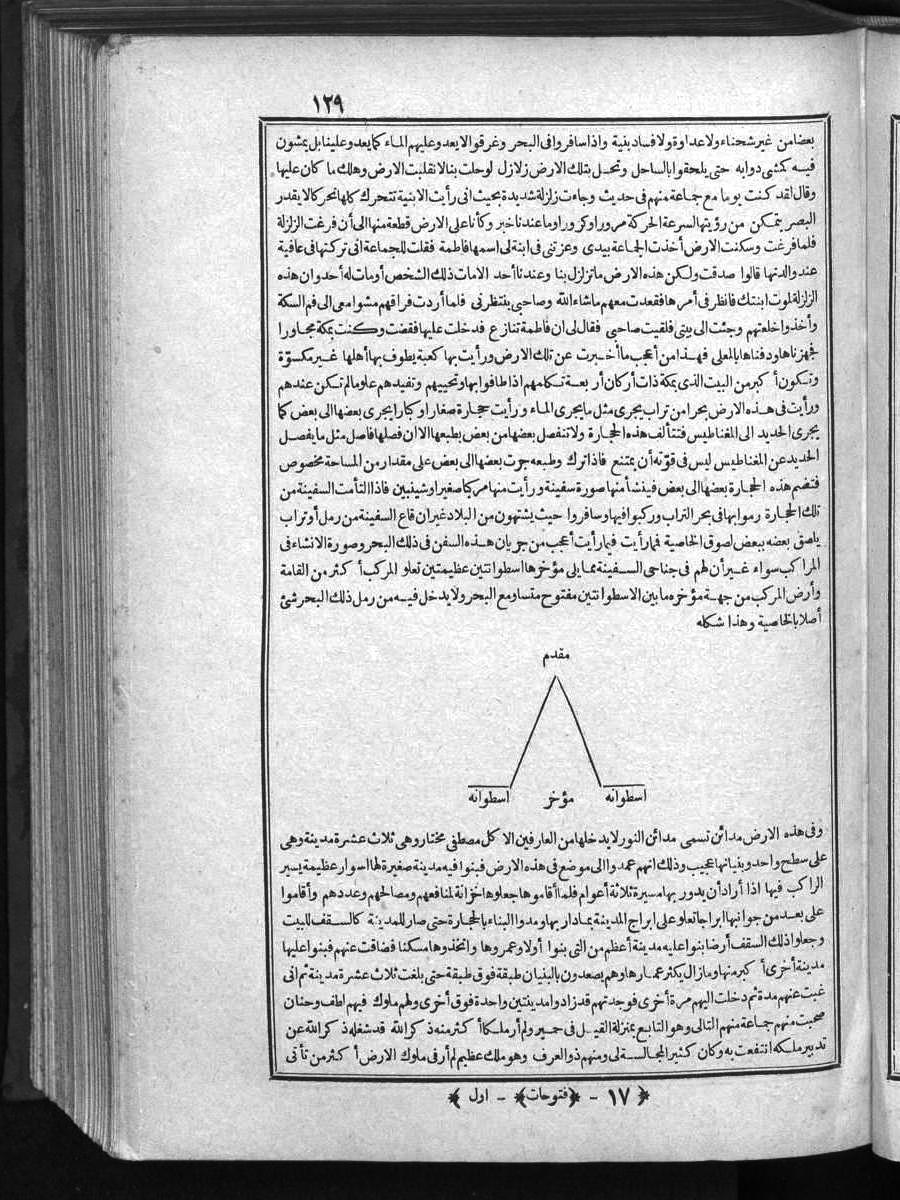 ١٢٩
بعضا من غير شحناء ولا عداوة ولا فساد بنية واذا سافروا فى البحر وغرقوا لا يعدو عليهم الماء كما يعدو علينا بل يمشون
فيه كمشى دوابه حتى يلحقوا بالساحل وتحل بتلك الارض زلازل لو حلت بنا لانقلبت الارض وهلك ما كان عليها
وقال لقد كنت يوما مع جماعة منهم فى حديث وجاءت زلزلة شديدة بحيث انى رأيت الابنية تتحرك كلها تحركا لا يقدر
البصر يتمكن من رؤيتها لسرعة الحركة مرورا وكرورا وما عندنا خبر وكأنا على الارض قطعة منها الى أن فرغت الزلزلة
فلما فرغت وسكنت الارض أخذت الجماعة بيدى وعزتنى فى ابنة لى اسمها فاطمة فقلت للجماعة انى تركتها فى عافية
عند والدتها قالوا صدقت ولكن هذه الارض ما تزلزل بنا وعندنا أحد الا مات ذلك الشخص أو مات له أحد وان هذه
الزلزلة لموت ابنتك فانظر فى أمرها فقعدت معهم ما شاء الله وصاحبى ينتظرنى فلما أردت فراقهم مشوا معى الى فم السكة
وأخذوا خلعتهم وجئت الى بيتى فلقيت صاحبى فقال لى ان فاطمة تنازع فدخلت عليها فقضت وكنت بمكة مجاورا
فجهزناها ودفناها بالمعلى فهذا من أعجب ما أخبرت عن تلك الارض ورأيت بها كعبة يطوف بها أهلها غير مكسوّة
وتكون أكبر من البيت الذى بمكة ذات أركان أربعة تكلمهم اذا طافوا بها وتحييهم وتفيدهم علوما لم تكن عندهم
ورأيت فى هذه الارض بحرا من تراب يجرى مثل ما يجرى الماء ورأيت حجارة صغارا وكبارا يجرى بعضها الى بعض كما
يجرى الحديد الى المغناطيس فتتألف هذه الحجارة ولا تنفصل بعضها من بعض بطبعها الا ان فصلها فاصل مثل ما يفصل
الحديد عن المغناطيس ليس فى قوّته أن يمتنع فاذا ترك وطبعه جرت بعضها الى بعض على مقدار من المساحة مخصوص
فتضم هذه الحجارة بعضها الى بعض فينشأ منها صورة سفينة ورأيت منها مركبا صغيرا وشينيين فاذا التأمت السفينة من
تلك الحجارة رموا بها فى بحر التراب وركبوا فيها وسافروا حيث يشتهون من البلاد غير ان قاع السفينة من رمل أو تراب
يلصق بعضه ببعض لصوق الخاصية فما رأيت فيما رأيت أعجب من جريان هذه السفن فى ذلك البحر وصورة الانشاء فى
المراكب سواء غير أن لهم فى جناحى السفينة مما يلى مؤخرها اسطوانتين عظيمتين تعلو المركب أكثر من القامة
وأرض المركب من جهة مؤخره ما بين الاسطوانتين مفتوح متساو مع البحر ولا يدخل فيه من رمل ذلك البحر شئ
أصلا بالخاصية وهذا شكله
مقدم
اسطوانه مؤخر اسطوانه
وفى هذه الارض مدائن تسمى مدائن النور لا يدخلها من العارفين الا كل مصطفى مختار وهى ثلاث عشرة مدينة وهى
على سطح واحد وبنيانها عجيب وذلك انهم عمدوا الى موضع فى هذه الارض فبنوا فيه مدينة صغيرة لها اسوار عظيمة يسير
الراكب فيها اذا أراد أن يدور بها مسيرة ثلاثة أعوام فلما أقاموها جعلوها خزانة لمنافعهم ومصالحهم وعددهم وأقاموا
على بعد من جوانبها ابراجا تعلو على ابراج المدينة بما دار بها ومدوا البناء بالحجارة حتى صار للمدينة كالسقف للبيت
وجعلوا ذلك السقف أرضا بنوا عليه مدينة أعظم من التى بنوا أولا وعمروها واتخذوها مسكنا فضاقت عنهم فبنوا عليها
مدينة أخرى أكبر منها وما زال يكثر عمارها وهم يصعدون بالبنيان طبقة فوق طبقة حتى بلغت ثلاث عشرة مدينة ثم انى
غبت عنهم مدة ثم دخلت اليهم مرة أخرى فوجدتهم قد زادوا مدينتين واحدة فوق أخرى ولهم ملوك فيهم لطف وحنان
صحبت منهم جماعة منهم التالى وهو التابع بمنزلة القيل فى حمير ولم أر ملكا أكثر منه ذكر الله قد شغله ذكر الله عن
تدبير ملكه انتفعت به وكان كثير المجالسة لى ومنهم ذو العرف وهو ملك عظيم لم أر فى ملوك الارض أكثر من تأتى
﴿ ١٧ - ﴿فتوحات﴾ - اول ﴾